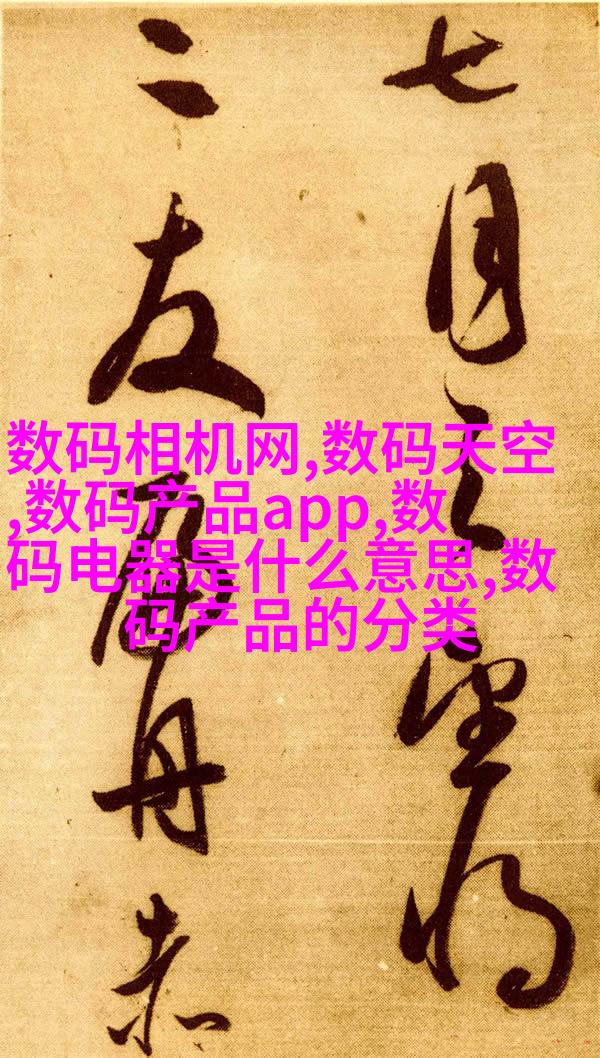 七月之望将
二友舟赤
数码相机网,数码天空
,数码产品app,数
码电器是什么意思,数
码产品的分类